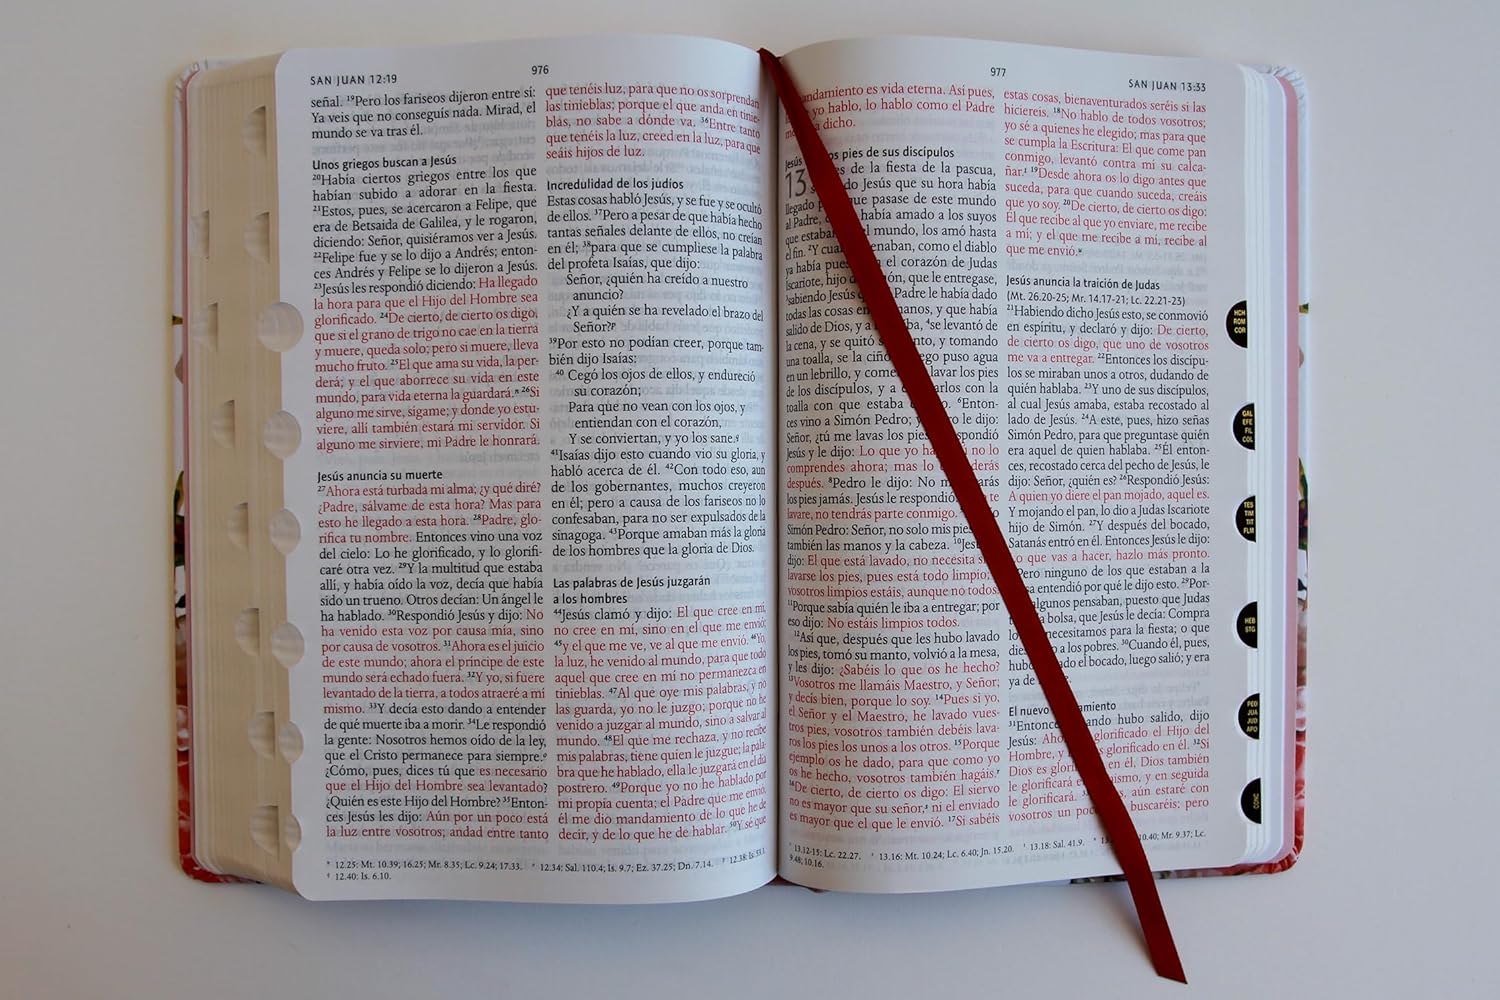 SAN JUAN 12:19
976
señal. 19Pero los fariseos dijeron entre sí:
Ya veis que no conseguís nada. Mirad, el
mundo se va tras él.
Unos griegos buscan a Jesús
20Había ciertos griegos entre los que
habían subido a adorar en la fiesta.
21Estos, pues, se acercaron a Felipe, que
era de Betsaida de Galilea, y le rogaron,
diciendo: Señor, quisiéramos ver a Jesús.
22Felipe fue y se lo dijo a Andrés; enton-
ces Andrés y Felipe se lo dijeron a Jesús.
23Jesús les respondió diciendo: Ha llegado
la hora para que el Hijo del Hombre sea
glorificado. 24De cierto, de cierto os digo,
que si el grano de trigo no cae en la tierra
y muere, queda solo; pero si muere, lleva
mucho fruto. 25El que ama su vida, la per-
derá; y el que aborrece su vida en este
mundo, para vida eterna la guardará.ⁿ 26Si
alguno me sirve, sígame; y donde yo estu-
viere, allí también estará mi servidor. Si
alguno me sirviere, mi Padre le honrará.
Jesús anuncia su muerte
27Ahora está turbada mi alma; ¿y qué diré?
¿Padre, sálvame de esta hora? Mas para
esto he llegado a esta hora. 28Padre, glo-
rifica tu nombre. Entonces vino una voz
del cielo: Lo he glorificado, y lo glorifi-
caré otra vez. 29Y la multitud que estaba
allí, y había oído la voz, decía que había
sido un trueno. Otros decían: Un ángel le
ha hablado. 30Respondió Jesús y dijo: No
ha venido esta voz por causa mía, sino
por causa de vosotros. 31Ahora es el juicio
de este mundo; ahora el príncipe de este
mundo será echado fuera. 32Y yo, si fuere
levantado de la tierra, a todos atraeré a mí
mismo. 33Y decía esto dando a entender
de qué muerte iba a morir. 34Le respondió
la gente: Nosotros hemos oído de la ley,
que el Cristo permanece para siempre.º
¿Cómo, pues, dices tú que es necesario
que el Hijo del Hombre sea levantado?
¿Quién es este Hijo del Hombre? 35Enton-
ces Jesús les dijo: Aún por un poco está
la luz entre vosotros; andad entre tanto
que tenéis luz, para que no os sorprendan
las tinieblas; porque el que anda en tinie-
blas, no sabe a dónde va. 36Entre tanto
que tenéis la luz, creed en la luz, para que
seáis hijos de luz.
Incredulidad de los judíos
Estas cosas habló Jesús, y se fue y se ocultó
de ellos. 37Pero a pesar de que había hecho
tantas señales delante de ellos, no creían
en él; 38para que se cumpliese la palabra
del profeta Isaías, que dijo:
Señor, ¿quién ha creído a nuestro
anuncio?
¿Y a quién se ha revelado el brazo del
Señor?ᵖ
39Por esto no podían creer, porque tam-
bién dijo Isaías:
40 Cegó los ojos de ellos, y endureció
su corazón;
Para que no vean con los ojos, y
entiendan con el corazón,
Y se conviertan, y yo los sane.
41Isaías dijo esto cuando vio su gloria, y
habló acerca de él. 42Con todo eso, aun
de los gobernantes, muchos creyeron
en él; pero a causa de los fariseos no lo
confesaban, para no ser expulsados de la
sinagoga. 43Porque amaban más la gloria
de los hombres que la gloria de Dios.
Las palabras de Jesús juzgarán
a los hombres
44Jesús clamó y dijo: El que cree en mí,
no cree en mí, sino en el que me envió;
45y el que me ve, ve al que me envió. 46Yo,
la luz, he venido al mundo, para que todo
aquel que cree en mí no permanezca en
tinieblas. 47Al que oye mis palabras, y no
las guarda, yo no le juzgo; porque no he
venido a juzgar al mundo, sino a salvar al
mundo. 48El que me rechaza, y no recibe
mis palabras, tiene quien le juzgue; la pala-
bra que he hablado, ella le juzgará en el día
postrero. 49Porque yo no he hablado por
mi propia cuenta; el Padre que me envió,
él me dio mandamiento de lo que he de
decir, y de lo que he de hablar. 50Y sé que
ⁿ 12.25: Mt. 10.39; 16.25; Mr. 8.35; Lc. 9.24; 17.33. º 12.34: Sal. 110.4; Is. 9.7; Ez. 37.25; Dn. 7.14. ᵖ 12.38: Is. 53.1.
12.40: Is. 6.10.
977
SAN JUAN 13:33
andamiento es vida eterna. Así pues,
yo hablo, lo hablo como el Padre
dicho.
Jesús pies de sus discípulos
13 es de la fiesta de la pascua,
do Jesús que su hora había
llegado que pasase de este mundo
al Padre, había amado a los suyos
que estaba el mundo, los amó hasta
el fin. 2Y cua enaban, como el diablo
ya había pues n el corazón de Judas
Iscariote, hijo món, que le entregase,
3sabiendo Jesús q Padre le había dado
todas las cosas en manos, y que había
salido de Dios, y a ba, 4se levantó de
la cena, y se quitó s nto, y tomando
una toalla, se la ciñó ego puso agua
en un lebrillo, y come lavar los pies
de los discípulos, y a arlos con la
toalla con que estaba o. 6Enton-
ces vino a Simón Pedro; y ro le dijo:
Señor, ¿tú me lavas los pies pondió
Jesús y le dijo: Lo que yo h ú no lo
comprendes ahora; mas lo derás
después. 8Pedro le dijo: No m arás
los pies jamás. Jesús le respondió o te
lavare, no tendrás parte conmigo.
Simón Pedro: Señor, no solo mis pie
también las manos y la cabeza. 10Jes
dijo: El que está lavado, no necesita s
lavarse los pies, pues está todo limpio;
vosotros limpios estáis, aunque no todos.
11Porque sabía quién le iba a entregar; por
eso dijo: No estáis limpios todos.
12Así que, después que les hubo lavado
los pies, tomó su manto, volvió a la mesa,
y les dijo: ¿Sabéis lo que os he hecho?
13Vosotros me llamáis Maestro, y Señor;
y decís bien, porque lo soy. 14Pues si yo,
el Señor y el Maestro, he lavado vues-
tros pies, vosotros también debéis lava-
ros los pies los unos a los otros. 15Porque
ejemplo os he dado, para que como yo
os he hecho, vosotros también hagáis.ʳ
16De cierto, de cierto os digo: El siervo
no es mayor que su señor,ˢ ni el enviado
es mayor que el que le envió. 17Si sabéis
estas cosas, bienaventurados seréis si las
hiciereis. 18No hablo de todos vosotros;
yo sé a quienes he elegido; mas para que
se cumpla la Escritura: El que come pan
conmigo, levantó contra mí su calca-
ñar.ᵗ 19Desde ahora os lo digo antes que
suceda, para que cuando suceda, creáis
que yo soy. 20De cierto, de cierto os digo:
El que recibe al que yo enviare, me recibe
a mí; y el que me recibe a mí, recibe al
que me envió.ᵘ
Jesús anuncia la traición de Judas
(Mt. 26.20-25; Mr. 14.17-21; Lc. 22.21-23)
21Habiendo dicho Jesús esto, se conmovió
en espíritu, y declaró y dijo: De cierto,
de cierto os digo, que uno de vosotros
me va a entregar. 22Entonces los discípu-
los se miraban unos a otros, dudando de
quién hablaba. 23Y uno de sus discípulos,
al cual Jesús amaba, estaba recostado al
lado de Jesús. 24A este, pues, hizo señas
Simón Pedro, para que preguntase quién
era aquel de quien hablaba. 25Él enton-
ces, recostado cerca del pecho de Jesús, le
dijo: Señor, ¿quién es? 26Respondió Jesús:
A quien yo diere el pan mojado, aquel es.
Y mojando el pan, lo dio a Judas Iscariote
hijo de Simón. 27Y después del bocado,
Satanás entró en él. Entonces Jesús le dijo:
o que vas a hacer, hazlo más pronto.
Pero ninguno de los que estaban a la
sa entendió por qué le dijo esto. 29Por-
algunos pensaban, puesto que Judas
a bolsa, que Jesús le decía: Compra
lo necesitamos para la fiesta; o que
die o a los pobres. 30Cuando él, pues,
hubo ado el bocado, luego salió; y era
ya de
El nuevo amiento
31Entonc ando hubo salido, dijo
Jesús: Aho glorificado el Hijo del
Hombre, y s glorificado en él. 32Si
Dios es glori en él, Dios también
le glorificará e mismo, y en seguida
le glorificará. s, aún estaré con
vosotros un poc buscaréis; pero
13.12-15: Lc. 22.27. ˢ 13.16: Mt. 10.24; Lc. 6.40; Jn. 15.20. 13.18: Sal. 41.9. 13. 10.40; Mr. 9.37; Lc.
9.48; 10.16.
HCH
ROM
COR
GAL
EFE
FIL
COL
TES
TIM
TIT
FLM
HEB
STG
PED
JUA
JUD
APO
CONC